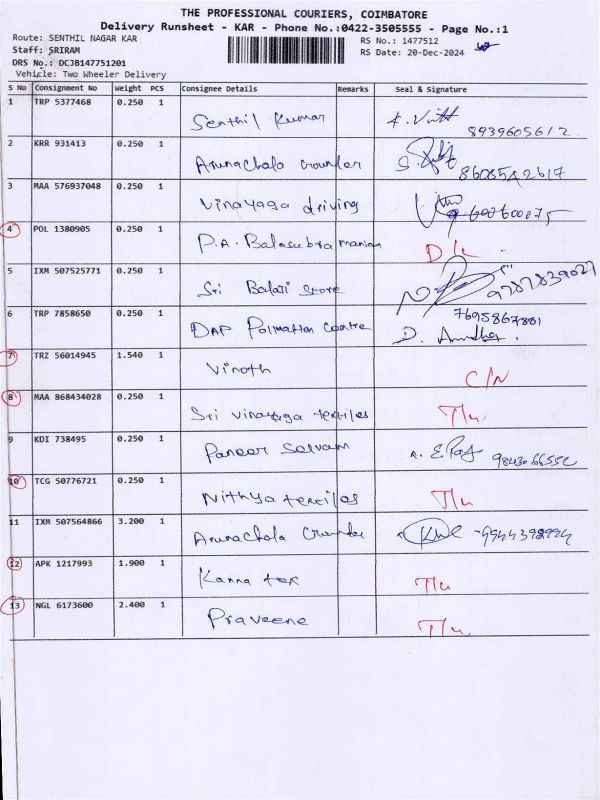 THE PROFESSIONAL COURIERS, COIMBATORE
Delivery Runsheet - KAR - Phone No.:0422-3505555 - Page No.:1
Route: SENTHIL NAGAR KAR
RS No.: 1477512
Staff: SRIRAM
RS Date: 20-Dec-2024
DRS No.: DCJB147751201
Vehicle: Two Wheeler Delivery
S No Consignment No Weight PCS Consignee Details Remarks Seal & Signature
1 TRP 5377468 0.250 1 Senthil Kumar 8939605612
2 KRR 931413 0.250 1 Arunachala Gounder 8608542617
3 MAA 576937048 0.250 1 Vinayaga driving
4 POL 1380905 0.250 1 P.A. Balasubramanian D/L
5 IXM 507525771 0.250 1 Sri Balaji Store 9787839027
6 TRP 7858650 0.250 1 DAP Polmation Centre 7695867881
7 TRZ 56014945 1.540 1 Vinoth C/N
8 MAA 868434028 0.250 1 Sri Vinayaga textiles T/L
9 KDI 738495 0.250 1 Paneer Selvam
10 TCG 50776721 0.250 1 Nithya textiles T/L
11 IXM 507564866 3.200 1 Arunachala Gounder
12 APK 1217993 1.900 1 Kanna tex T/L
13 NGL 6173600 2.400 1 Praveene T/L